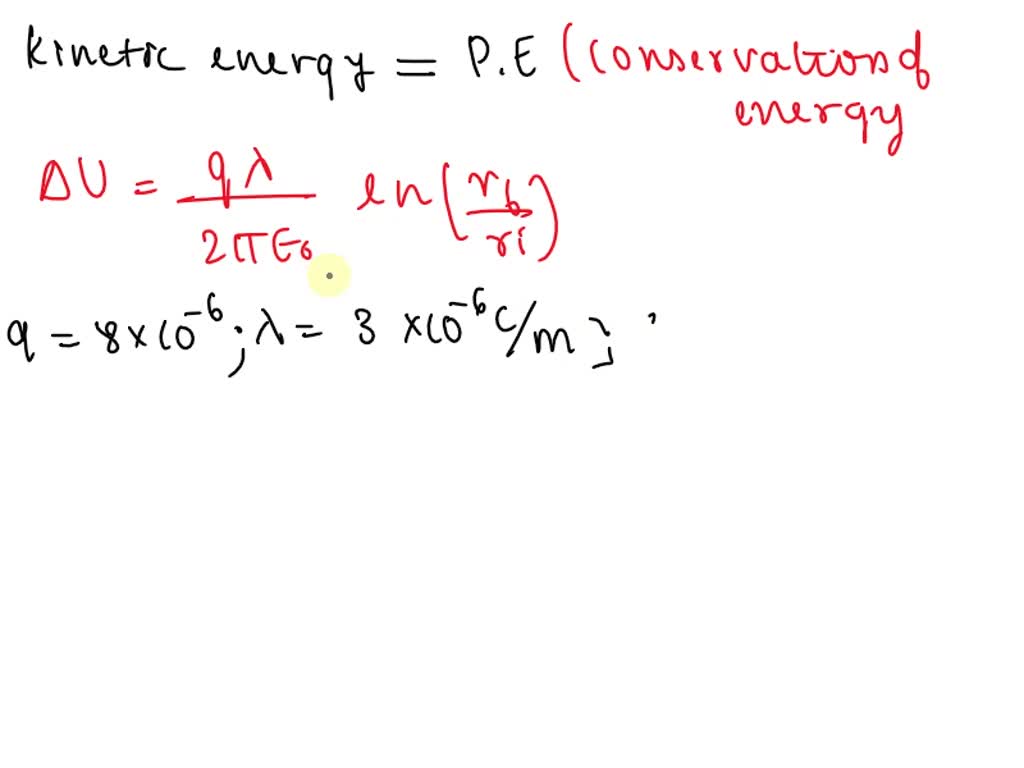 kinetic energy = P.E (conservation of
energy
ΔU = qλ / 2πε₀ ln(rf / ri)
q = 8×10⁻⁶; λ = 3 ×10⁻⁶ C/m; '